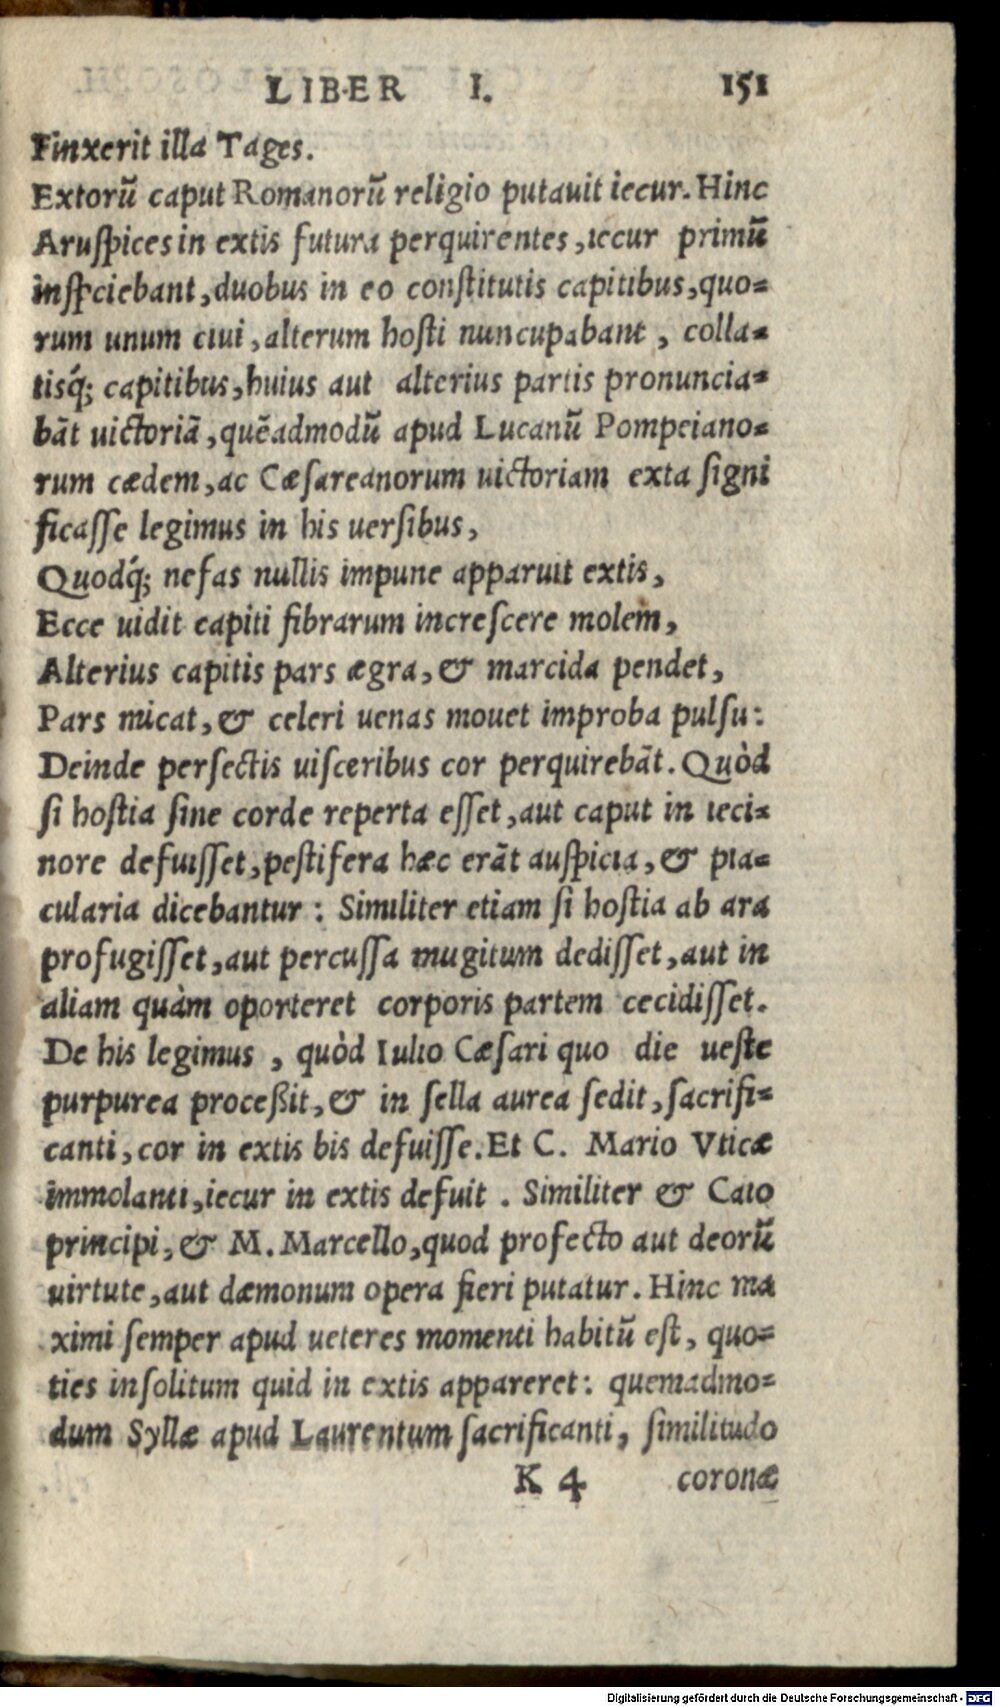 LIBER I. 151
Finxerit illa Tages.
Extorū caput Romanorū religio putauit iecur. Hinc
Aruſpices in extis futura perquirentes, iecur primū
inſpciebant, duobus in eo conſtitutis capitibus, quo-
rum unum ciui, alterum hoſti nuncupabant, colla-
tisq́; capitibus, huius aut alterius partis pronuncia-
bāt uictoriā, quēadmodū apud Lucanū Pompeiano-
rum cædem, ac Cæſareanorum uictoriam exta ſigni
ficaſſe legimus in his uerſibus,
Quodq́; nefas nullis impune apparuit extis,
Ecce uidit capiti fibrarum increſcere molem,
Alterius capitis pars ægra, & marcida pendet,
Pars micat, & celeri uenas mouet improba pulſu:
Deinde perſectis uiſceribus cor perquirebāt. Quòd
ſi hoſtia ſine corde reperta eſſet, aut caput in ieci-
nore defuiſſet, peſtifera hæc erāt auſpicia, & pia-
cularia dicebantur: Similiter etiam ſi hoſtia ab ara
profugiſſet, aut percuſſa mugitum dediſſet, aut in
aliam quàm oporteret corporis partem cecidiſſet.
De his legimus, quòd Iulio Cæſari quo die ueſte
purpurea proceßit, & in ſella aurea ſedit, ſacrifi-
canti, cor in extis bis defuiſſe. Et C. Mario Vticæ
immolanti, iecur in extis defuit. Similiter & Caio
principi, & M. Marcello, quod profecto aut deorū
uirtute, aut dæmonum opera fieri putatur. Hinc ma
ximi ſemper apud ueteres momenti habitū eſt, quo-
ties inſolitum quid in extis appareret: quemadmo-
dum Syllæ apud Laurentum ſacrificanti, ſimilitudo
K 4 coronæ
Digitalisierung gefördert durch die Deutsche Forschungsgemeinschaft - DFG